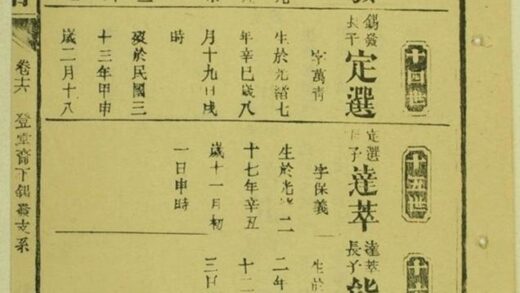 十四世
錫發
長子
定選
字萬青
生於光緒七
年辛巳歲八
月十九日戌
時
歿於民國三
十三年甲申
歲二月十八
十五世
定選
長子
達萃
字保義
生於光緒二
十七年辛丑
歲十一月初
一日申時
達萃
長子
生於
二年
十二
三日
卷十六
登堂裔下錫發支系